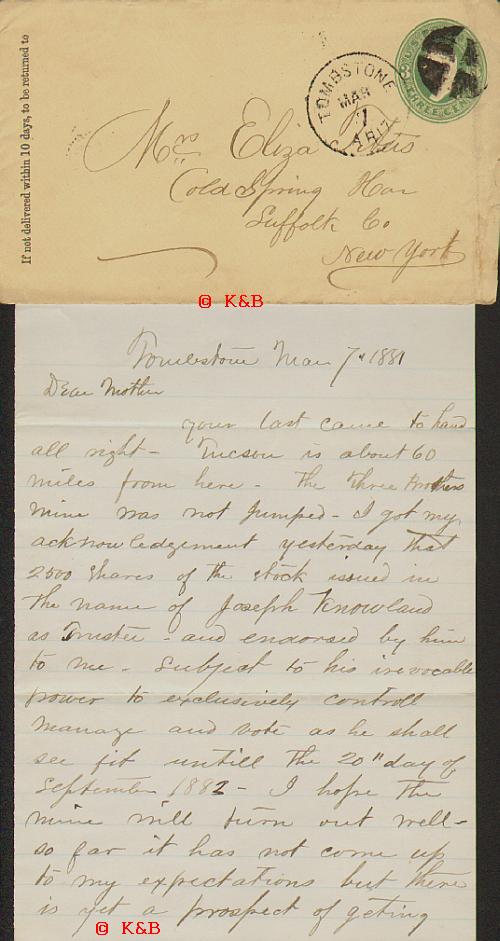 If not delivered within 10 days, to be returned to
TOMBSTONE
MAR
7
ARIZ
THREE CEN
Mrs Eliza
Cold Spring Har
Suffolk Co
New York
© K&B
Tombstone Mar 7" 1881
Dear Mother
your last came to hand
all right - Tucson is about 60
miles from here - The Three Brothers
mine was not Jumped - I got my
acknowledgement yesterday that
2500 shares of the stock issued in
the name of Joseph Knowland
as Trustee - and endorsed by him
to me - Subject to his irevocable
power to exclusively controll
manage and vote as he shall
see fit untill the 20" day of
September 1882 - I hope the
mine will turn out well -
so far it has not come up
to my expectations but there
is yet a prospect of geting
© K&B